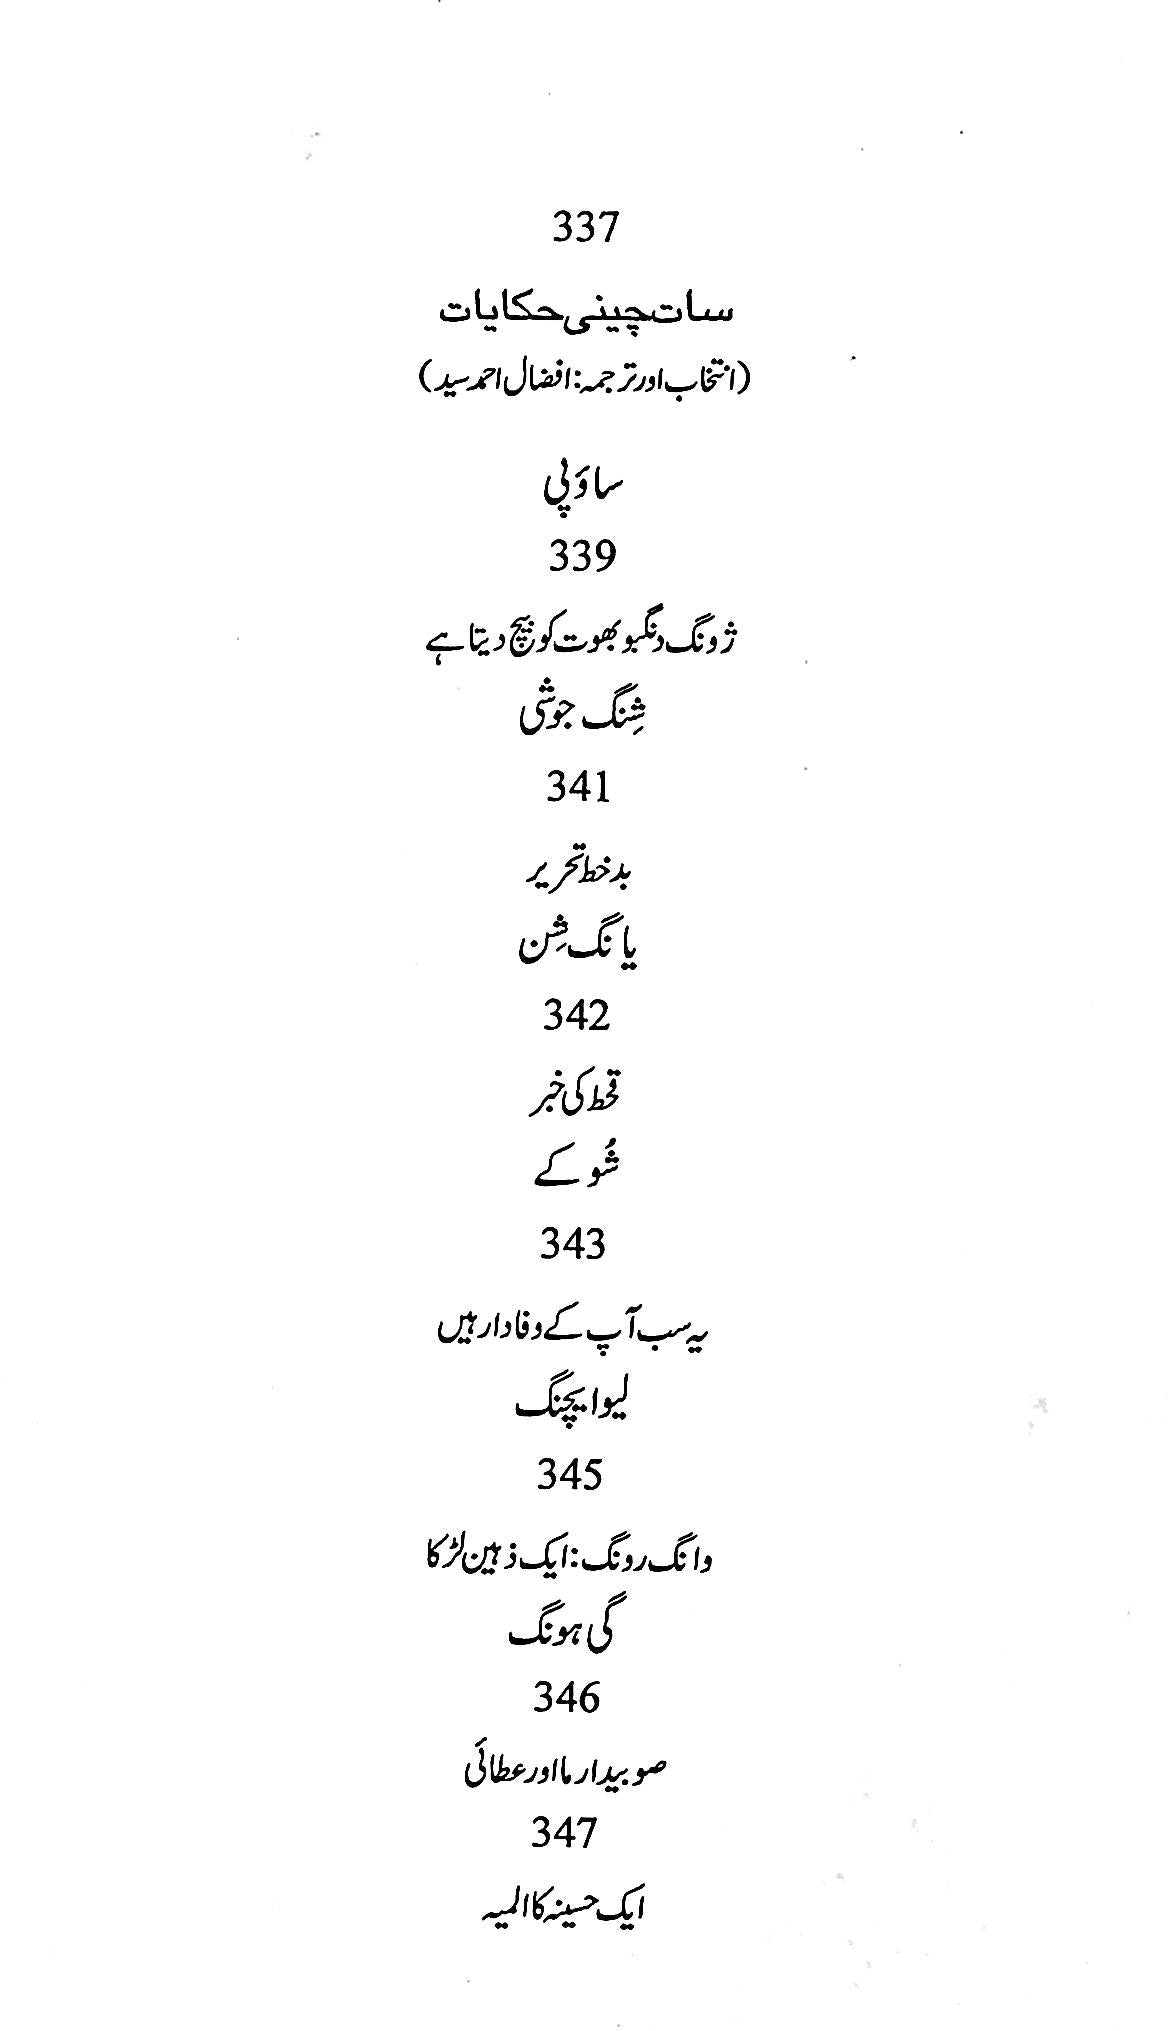 337
سات چینی حکایات
(انتخاب اور ترجمہ: افضال احمد سید)
ساؤپی
339
ژونگ دنگبو بھوت کو بیچ دیتا ہے
شِنگ جوشی
341
بد خط تحریر
یانگ شِن
342
قحط کی خبر
شُو کے
343
یہ سب آپ کے وفادار ہیں
لیو ایچنگ
345
وانگ رونگ: ایک ذہین لڑکا
گی ہونگ
346
صوبیدار ما اور عطائی
347
ایک حسینہ کا المیہ